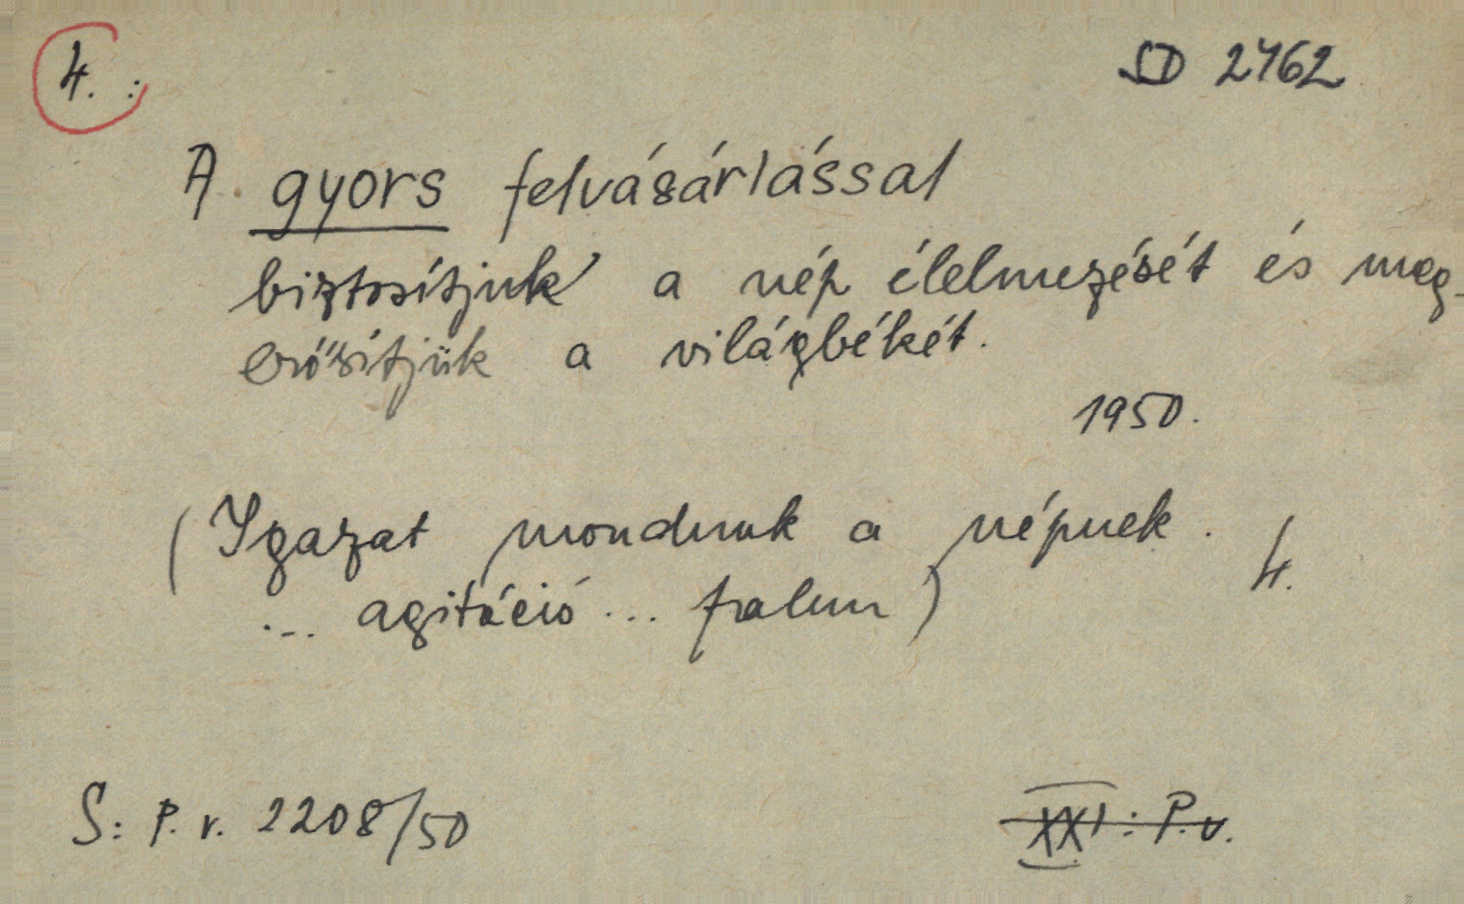 4. :
SD 2762
A gyors felvásárlással
biztosítjuk a nép élelmezését és meg-
erősítjük a világbékét.
1950.
(Igazat mondunk a népnek.
... agitáció ... falun)
4.
S: P. v. 2208/50
XXI: P. v.